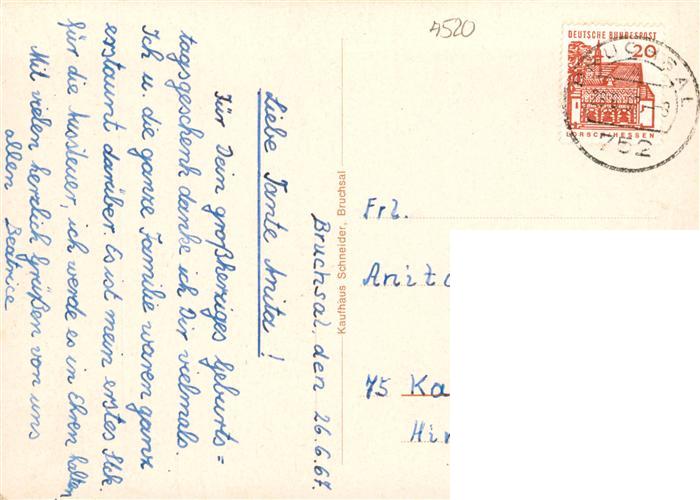 4520
DEUTSCHE BUNDESPOST
20
LORSCH/HESSEN
BRUCHSAL
752
Bruchsal, den 26.6.67.
Liebe Tante Anita!
Für Dein großherziges Geburts=
tagsgeschenk danke ich Dir vielmals.
Ich u. die ganze Familie waren ganz
erstaunt darüber. Es ist mein erstes Stck.
für die Aussteuer, ich werde es in Ehren halten
Mit vielen herzlich Grüßen von uns
allen Beatrice
Kaufhaus Schneider, Bruchsal
Frl.
Anita
75 Ka
Hir